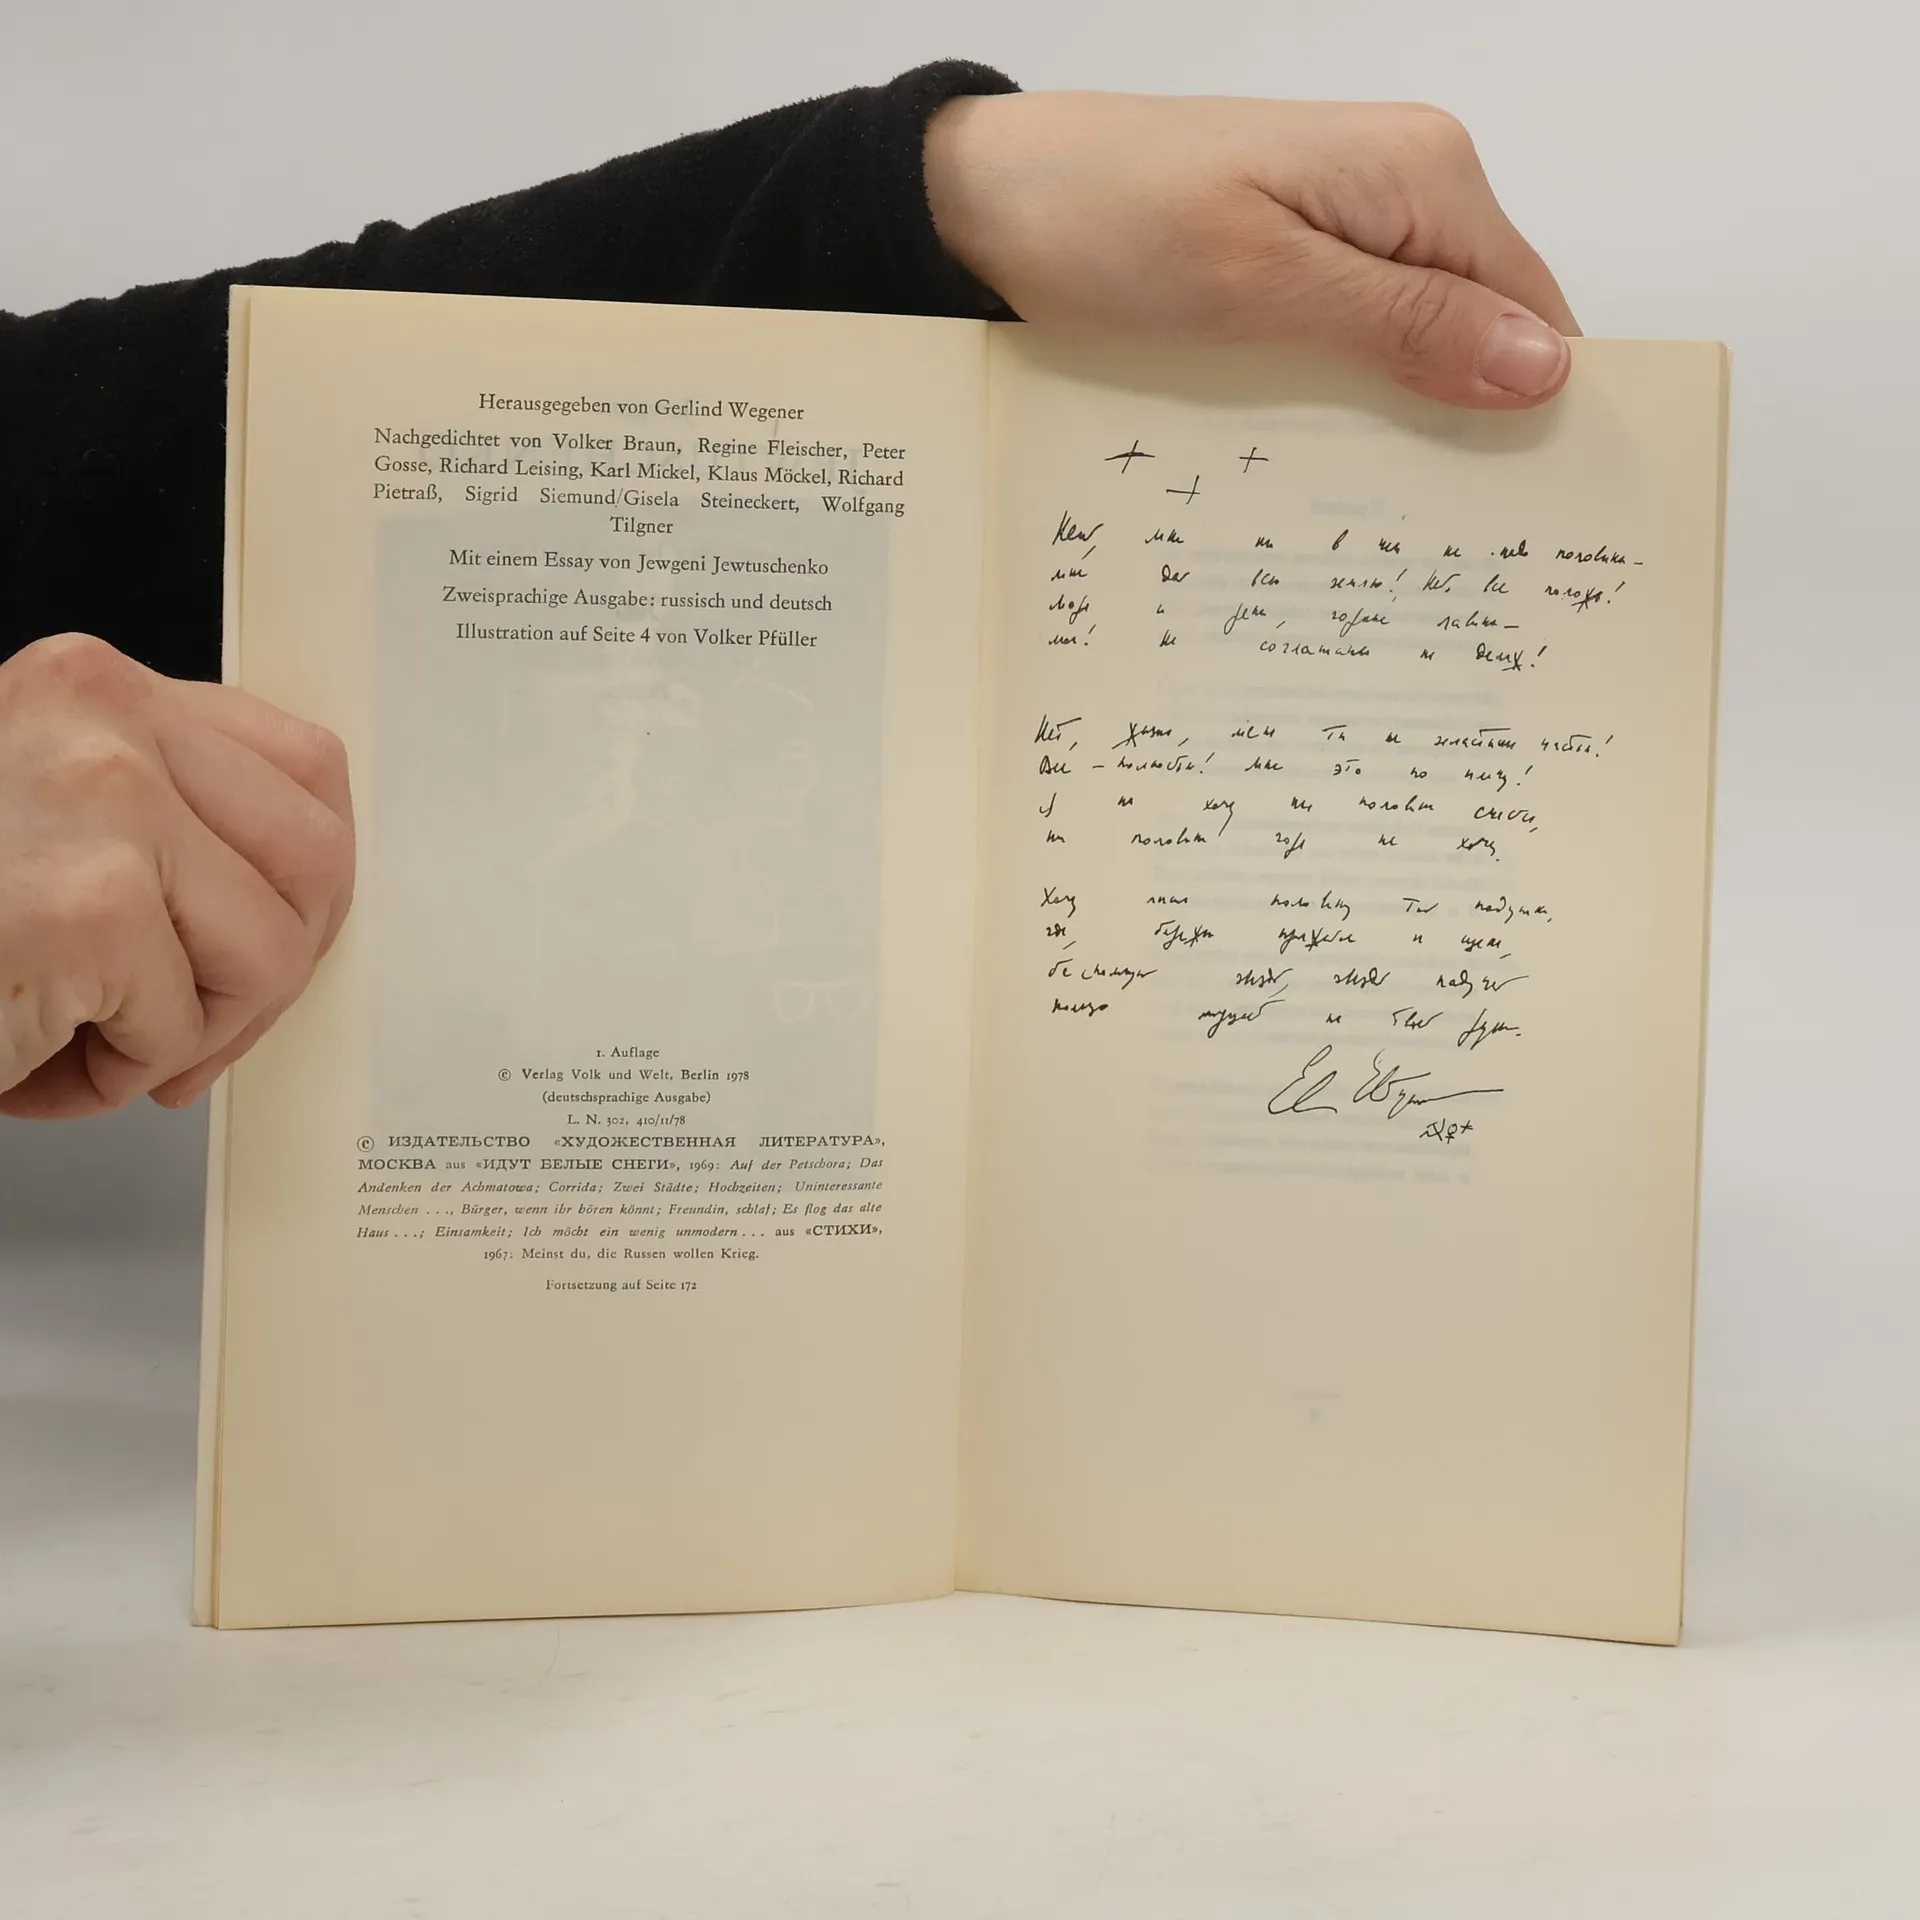 Herausgegeben von Gerlind Wegener
Nachgedichtet von Volker Braun, Regine Fleischer, Peter
Gosse, Richard Leising, Karl Mickel, Klaus Möckel, Richard
Pietraß, Sigrid Siemund/Gisela Steineckert, Wolfgang
Tilgner
Mit einem Essay von Jewgeni Jewtuschenko
Zweisprachige Ausgabe: russisch und deutsch
Illustration auf Seite 4 von Volker Pfüller
1. Auflage
© Verlag Volk und Welt, Berlin 1978
(deutschsprachige Ausgabe)
L. N. 302, 410/11/78
© ИЗДАТЕЛЬСТВО «ХУДОЖЕСТВЕННАЯ ЛИТЕРАТУРА»,
МОСКВА aus «ИДУТ БЕЛЫЕ СНЕГИ», 1969: Auf der Petschora; Das
Andenken der Achmatowa; Corrida; Zwei Städte; Hochzeiten; Uninteressante
Menschen . . ., Bürger, wenn ihr hören könnt; Freundin, schlaf; Es flog das alte
Haus . . .; Einsamkeit; Ich möcht ein wenig unmodern . . . aus «СТИХИ»,
1967: Meinst du, die Russen wollen Krieg.
Fortsetzung auf Seite 172
Нет, мне ни в чем не надо половины —
мне дай всю землю! Нет, все положь!
Моря и реки, горные лавины —
мои! Не соглашаюсь на дележ!
Нет, жизнь, меня ты не частью!
Все — полностью! Мне это по плечу!
Я не хочу ни половины счастья,
ни половины горя не хочу.
Хочу лишь половину той подушки,
где, бережно прижатое к щеке,
беспомощной звездой, звездой падучей
кольцо на твоей руке.